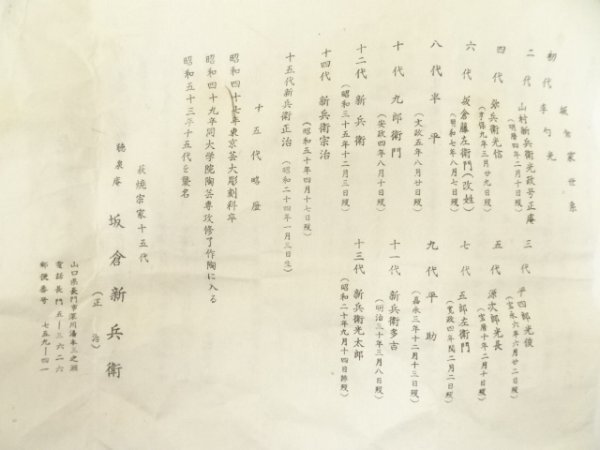 坂倉家世系
初代 李勺光
二代 山村新兵衛光政号正庵
(明暦四年二月十日歿)
三代 平四郎光俊
(宝永六年六月廿二日歿)
四代 弥兵衛光信
(享保九年三月廿九日歿)
五代 源次郎光長
(宝暦十年二月十日歿)
六代 坂倉藤左衛門(改姓)
(明和七年八月七日歿)
七代 五郎左衛門
(寛政四年閏二月二日歿)
八代 半平
(文政五年八月廿日歿)
九代 平助
(嘉永三年十二月十三日歿)
十代 九郎衛門
(安政四年八月十日歿)
十一代 新兵衛多吉
(明治三十年三月八日歿)
十二代 新兵衛
(昭和三十五年十二月三日歿)
十三代 新兵衛光太郎
(昭和二十年九月十四日歿)
十四代 新兵衛治
(昭和五十年四月十七日歿)
十五代 新兵衛正治
(昭和二十四年一月三日生)
十五代略歴
昭和四十七年東京芸大彫刻科卒
昭和四十九年同大学院陶芸専攻修了作陶に入る
昭和五十三年十五代を襲名
萩焼宗家十五代
聴泉庵 坂倉新兵衛
(正治)
山口県長門市深川湯本三之瀬
電話長門五―三六二六
郵便番号 七五九―四一